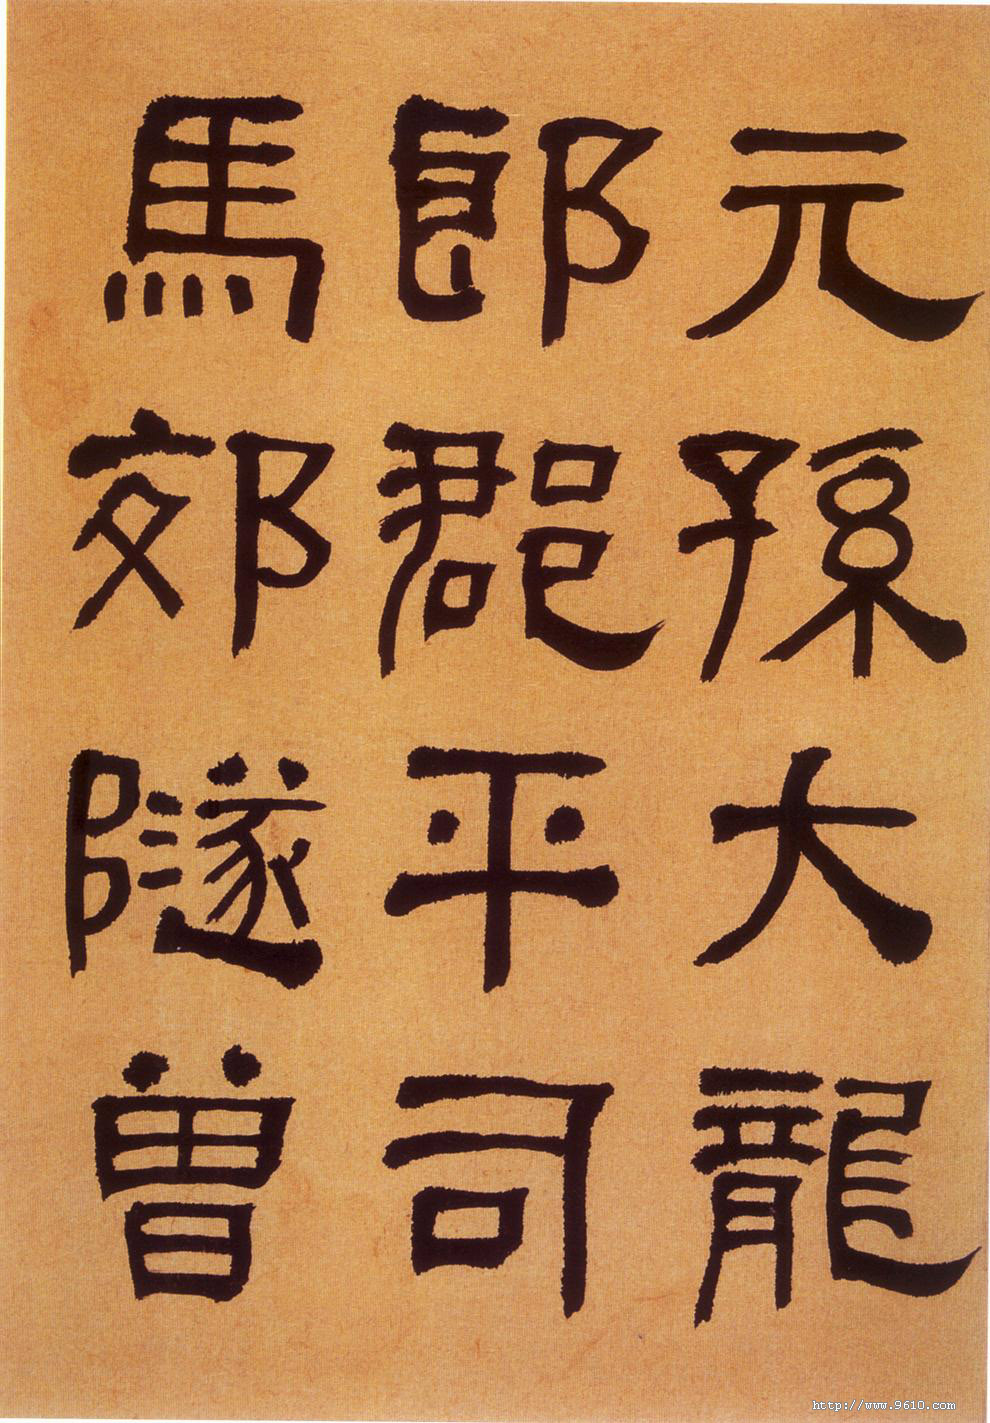 元孫大龍
郎郡平司
馬郊隧曽
http://www.9610.com